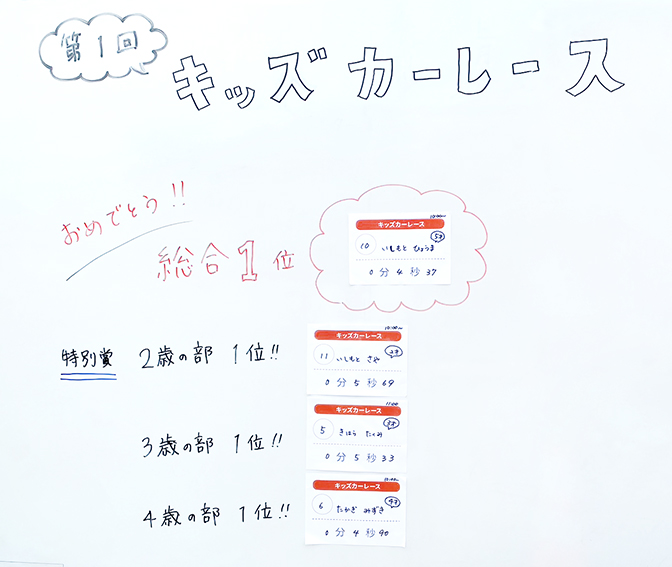 第1回
キッズカーレース
おめでとう!!
総合1位
10:00〜
キッズカーレース
5才
10 いしもと ひょうま
0分4秒37
特別賞 2歳の部 1位!!
10:00〜
キッズカーレース
2才
11 いしもと さや
0分5秒69
3歳の部 1位!!
11:00
キッズカーレース
3才
5 きはら たくみ
0分5秒33
4歳の部 1位!!
キッズカーレース
4才
6 たかぎ みずき
0分4秒90